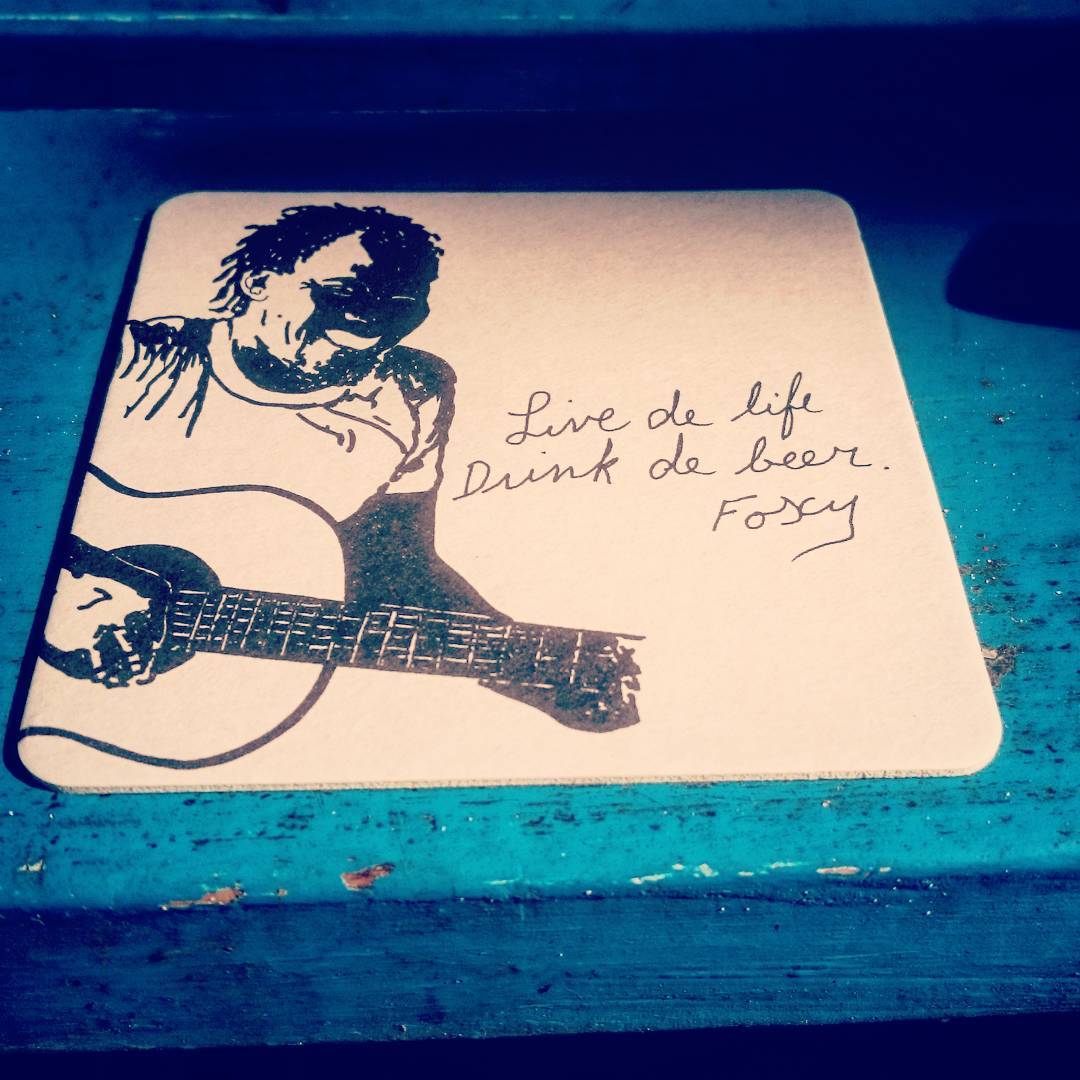 Live de life
Drink de beer.
Foxy